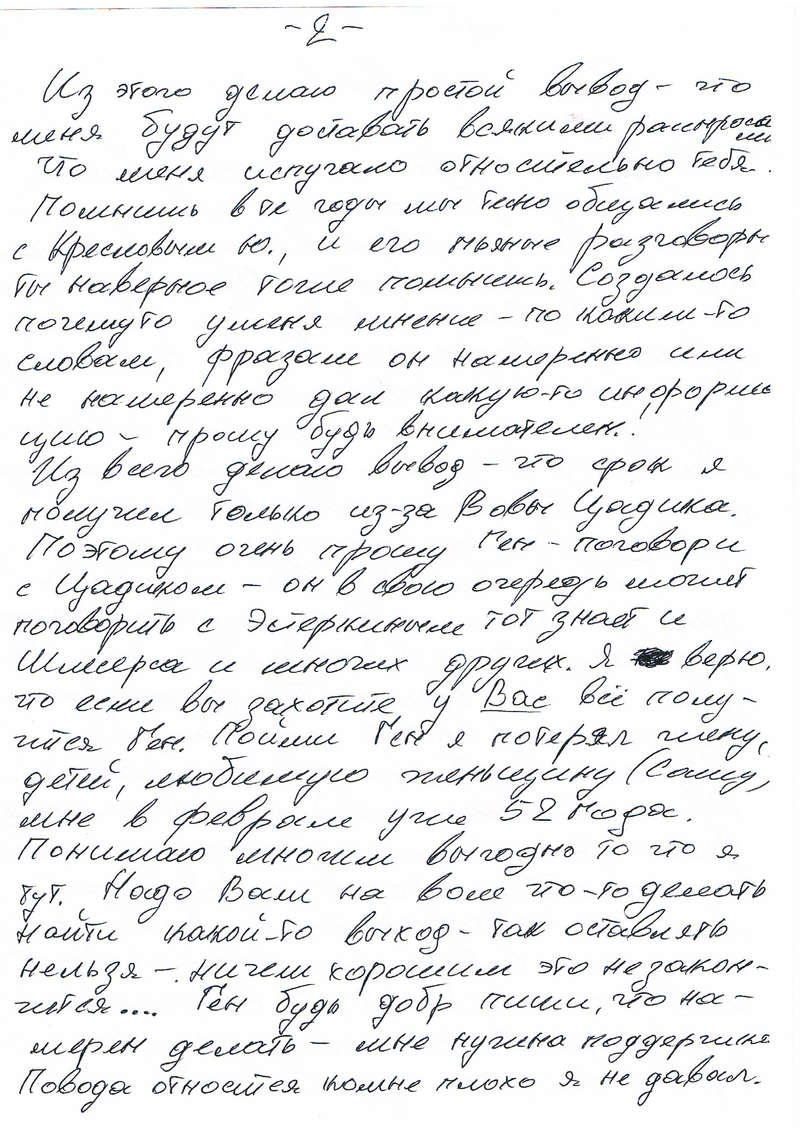 - 2 -
Из этого делаю простой вывод - что
меня будут доставать всякими расспросами
что меня испугало относительно тебя.
Помнишь в те годы мы тесно общались
с Кресловым Ю., и его пьяные разговоры
ты наверное тоже помнишь. Создалось
почемуто у меня мнение - по каким-то
словам, фразам он намеренно или
не намеренно дал какую-то информа
цию - прошу будь внимателен.!
Из всего делаю вывод - что срок я
получил только из-за Вовы Цадика.
Поэтому очень прошу Ген - поговори
с Цадиком - он в свою очередь может
поговорить с Эстеркиным тот знает и
Шмиерса и многих других. Я верю,
что если вы захотите у Вас всё полу-
чится Ген. Пойми Ген я потерял жену,
детей, любимую женьщину (Сашу,
мне в феврале уже 52 года.
Понимаю многим выгодно то что я
тут. Надо Вам на воле что-то делать
найти какой-то выход - так оставлять
нельзя -. ничем хорошим это незакон-
чится.... Ген будь добр пиши, что на-
мерен делать - мне нужна поддержка
Повода относится комне плохо я не давал.